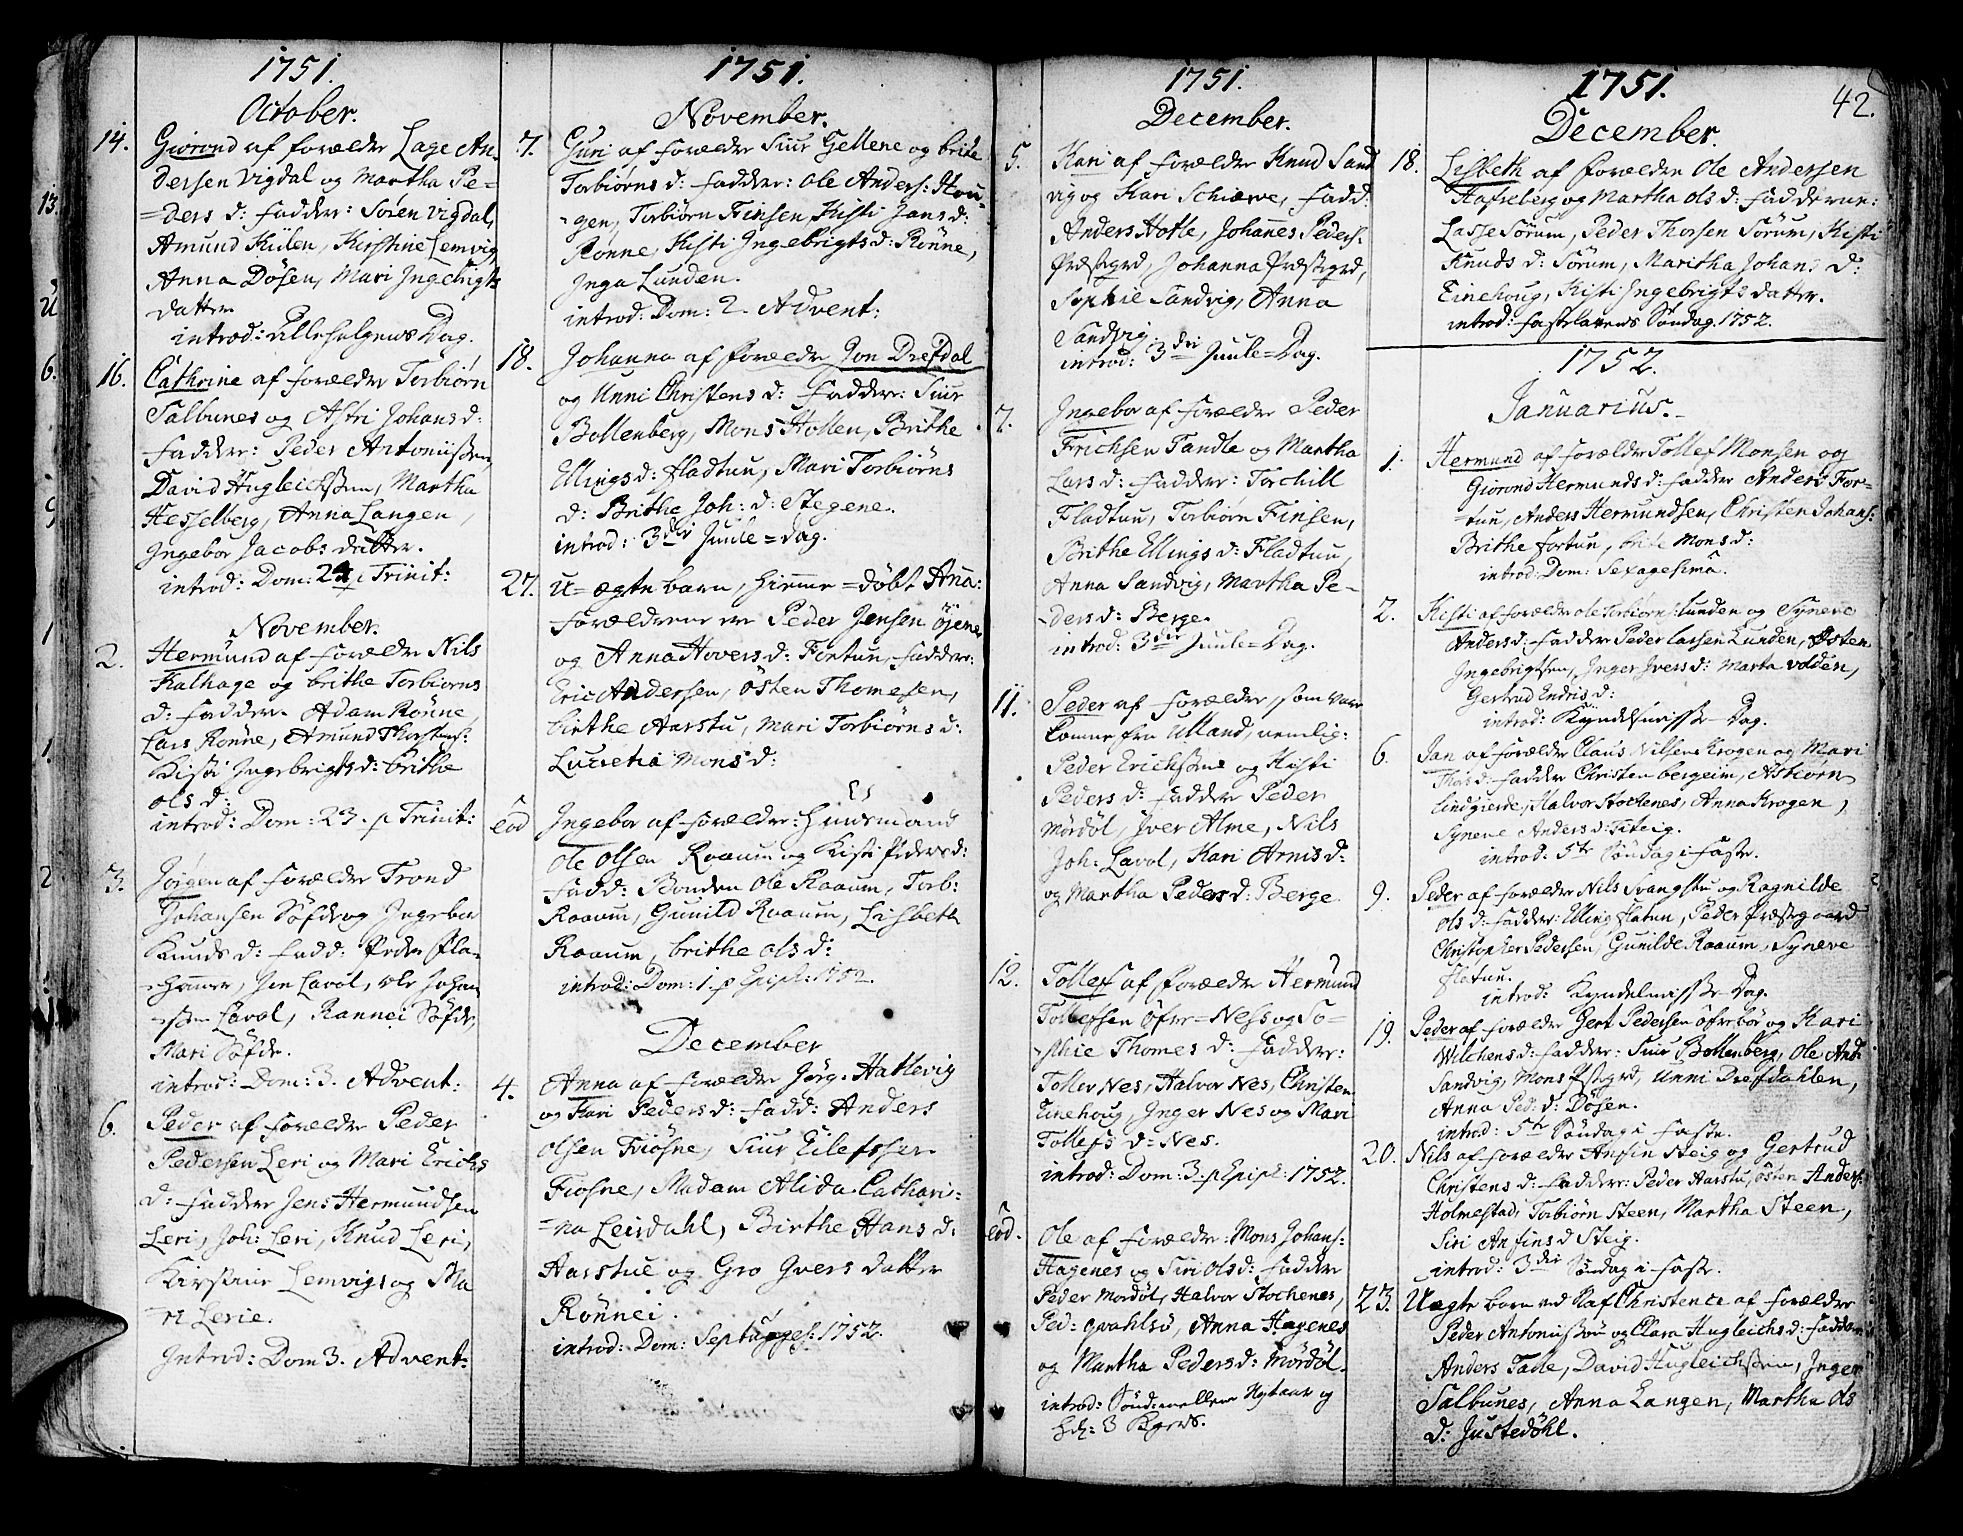 1751.
October.
14. Giørond af forældre Lage An-
dersen Vigdal og Martha Pe-
=ders d: fadder: Sören Vigdal,
Amund Külen, Kirstine Lemvig,
Anna Dösen, Mari Ingebrigts
datter
introd: Allehelgens Dag.
16. Cathrine af forældre Torbiørn
Talbunes og Astri Johans d:
fadder: Peder Antoniissen,
David Hugleichssen, Martha
Hesselberg, Anna Langen,
Ingebor Jacobs datter.
introd: Dom: 24 p Trinit:
November.
2. Hermund af forældre Nils
Kalhage og brithe Torbiørns
d: fadder. Adam Rönne,
Lars Rönne, Amund Thorstens:
Kisti Ingebrigts d: brithe
ols d:
introd: Dom: 23. p Trinit:
3. Jörgen af forældre Trond
Johansen Söfde og Ingebor
Knuds d: fadd: Peder Pla-
=hamer, Jen Lavol, ole Johan
=ssen Lavol, Rannei Söfde,
Mari Söfde.
introd: Dom: 3. Advent:
6. Peder af forældre Peder
Pedersen Leri og Mari Erichs
d: fadder Jens Hermundsen
Leri, Joh: Leri, Knud Leri,
Kirstine Lemvigs og Ma
ri Lerie.
Introd: Dom 3. Advent:
1751.
November.
7. Guri af forældre Siur Gellene og brite
Torbiørns d: fadder: Ole Anders: Hou-
=gen, Torbiørn Finsen, Kisti Jans d:
Rønne, Kisti Ingebrigts d: Rönne,
Inga Lunden.
introd: Dom: 2. Advent:
18. Johanna af forældre Jon Drefdal
og Unni Christens d: fadder: Siur
Bollenberg, Mons Hollen, Brithe
Ellings d: fladtun, Mari Torbiørns
d: Brithe Joh: d: Stegene.
introd: 3die Juule=dag.
27. U=ægte barn, hiemme=døbt Anna:
forældrene er Peder Jensen öjene
og Anna Hovers d: Fortun, fadder:
Eric Andersen, östen Thomesen,
birthe Aarstu, Mari Torbiörns d:
Lucretia Mons d:
eod Ingebor af forældre: Huusmand
Ole Olsen Roaum og Kisti Peders d:
fadd: Bonden Ole Roaum, Torb:
Roaum, Gunild Roaum, Lisbeth
Roaum, brithe Ols d:
introd: Dom: 1. p Epiph: 1752.
December
4. Anna af forældre Jörg. Hatlevig
og Kari Peders d: fadd: Anders
Olsen Friøsne, Siur Eilefssen
Fiosne, Madam Alida Cathari-
=na Leirdahl, Birthe Hans d:
Aarstue og Gro Gvers datter
Rönnei.
introd: Dom: Septuages: 1752.
1751.
December.
5. Kari af forældre Knud Sand
vig og Kari Schierve, fadd:
Anders Hotle, Johanes Peders:
Præstegrd, Johanna Præstegrd,
Sophie Sandvig, Anna
Sandvig
introd: 3die Juule=Dag.
7. Ingebor af forældre Peder
Frichsen Tandle og Martha
Lars d: fadder: Torchill
Fladtun, Torbiørn Finsen,
Brithe Ellings d: Fladtun,
Anna Sandvig, Martha Pe-
ders d: Berge.
introd: 3die Juule=Dag.
11. Peder af forældre, som vare
komne fra Ulland, nemlig:
Peder Erichssen og Kisti
Peders d: fadder Peder
Mördöl, Iver Alme, Nils
Joh: Lavol, Kari Arnis d:
og Martha Peders d: Berge
12. Tollef af forældre Hermund
Tollefsen öfre=Ness og So=
phie Thomes d: fadder:
Toller Nes, Halvor Nes, Christen
Einehoug, Inger Nes og Mari
Tollefs d: Nes.
introd: Dom: 3. p Epiph: 1752.
eod. Ole af forældre: Mons Johans:
Hagenes og Siri Ols d: fadder
Peder Mordöl, Halvor Stochenes,
Ped: qvahlsö, Anna Hagenes
og Martha Peders d: Mördöl.
introd: Sönd: mellem Nytaar og
hel: 3 Kgers.
1751.
42.
December.
18. Lisbeth af forældre Ole Andersen
Hafseberg og Martha Ols d: fadderne:
Lasse Sörum, Peder Thorsen Sörum, Kisti
Knuds d: Sörum, Maritha Johans d:
Einehoug, Kisti Ingebrigts datter.
introd: fastelavens Søndag. 1752.
1752.
Januarius.
1. Hermund af forældre Tollef Monsen og
Giørond Hermunds d: fadder Anders For-
=tun, Anders Hermundsen, Christen Johans:
Brithe fortun, brite Mons d:
introd: Dom: Sexagesima.
2. Kisti af forældre ole Torbiørns: Lunden og Syneve
Anders d: fadder Peder Larsen Lunden, Østen
Ingebrigtsen, Inger Ivers d: Marta volden,
Gertrud Endris d:
introd: Kyndelmisse Dag.
6. Jan af forældre Claus Nilsens Krogen og Mari
Thos d: fadder Christen bergeim, Asbiørn
Lindgierde, Halvor Stochenes, Anna Krogen,
Syneve Anders d: Titeig.
introd: 5te Søndag i faste.
9. Peder af forældre Nils Svangstu og Ragnilde
Ols d: fadder: Elling flatun, Peder Præstegaard
Christopher Pedersen, Gunilde Roaum, Syneve
flatun.
introd: Kyndelmisse Dag.
19. Peder af forældre Gert Pedersen öfrebör og Kari
Wilchens d: fadder: Siur Bollenberg, Ole And:
Sandvig, Mons Pstegrd, Unni Drefdahlen,
Anna Ped: d: Dösen.
introd: 5te Søndag i faste.
20. Nils af forældre Anfin Steig og Gertrud
Christens d: fadder: Peder Aarstu, östen Anders:
Holmestad, Torbiørn Steen, Martha Steen,
Siri Anfins d Steig.
introd: 3die Søndag i faste.
23. Uægte barn ved Naf Christence af forældre
Peder Antonissön og Clara Hugleichs d: faddere
Anders Tadle, David Hugleichssen, Inger
Talbunes, Anna Langen, Martha Ols
d: Justedöhl.